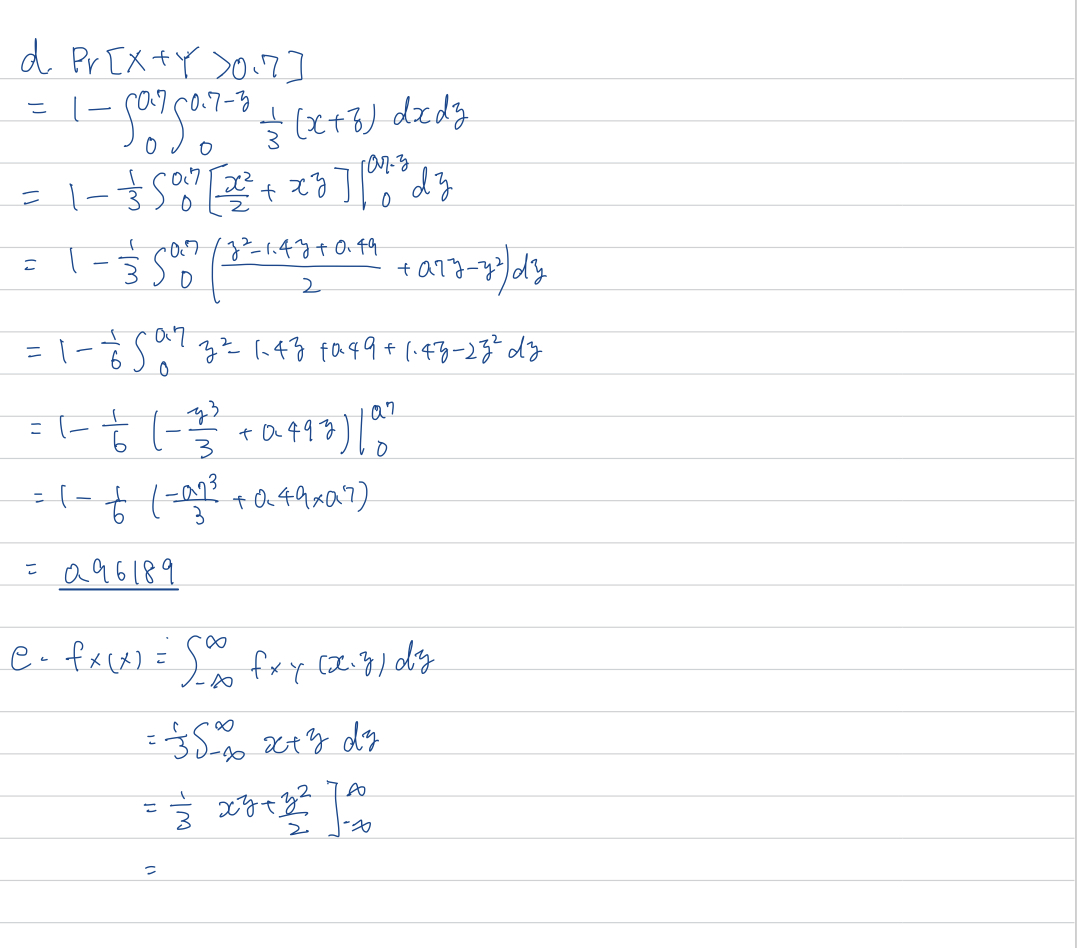 d. Pr[X+Y >0.7]
= 1-∫₀^0.7 ∫₀^0.7-y 1/3 (x+y) dxdy
= 1-1/3 ∫₀^0.7 [x²/2 + xy]|₀^0.7-y dy
= 1-1/3 ∫₀^0.7 (y²-1.4y+0.49/2 + 0.7y-y²)dy
= 1-1/6 ∫₀^0.7 y²-1.4y+0.49+1.4y-2y² dy
= 1-1/6 (-y³/3 + 0.49y)|₀^0.7
= 1-1/6 (-0.7³/3 + 0.49×0.7)
= 0.96189
e. fx(x) = ∫₋∞^∞ fxY (x.y) dy
= 1/3 ∫₋∞^∞ x+y dy
= 1/3 xy+y²/2 ]₋∞^∞
=